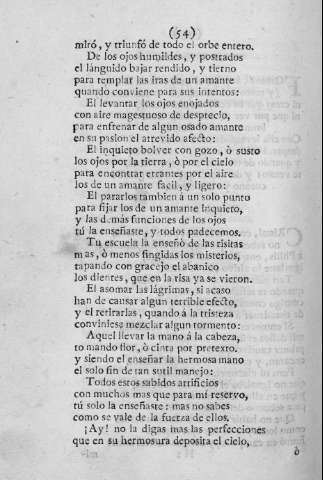 (54)
miró, y triunfó de todo el orbe entero.
De los ojos humildes, y postrados
el lánguido bajar rendido, y tierno
para templar las iras de un amante
quando conviene para sus intentos:
El levantar los ojos enojados
con aire magestuoso de desprecio,
para enfrenar de algun osado amante
en su pasion el atrevido afecto:
El inquieto bolver con gozo, ò susto
los ojos por la tierra, ò por el cielo
para encontrar errantes por el aire
los de un amante facil, y ligero:
El pararlos tambien à un solo punto
para fijar los de un amante inquieto,
y las demás funciones de los ojos
tú la enseñaste, y todos padecemos.
Tu escuela la enseñó de las risitas
mas, ò menos fingidas los misterios,
tapando con gracejo el abanico
los dientes, que en la risa ya se vieron.
El asomar las lágrimas, si acaso
han de causar algun terrible efecto,
y el retirarlas, quando à la tristeza
conviniese mezclar algun tormento:
Aquel llevar la mano à la cabeza,
tomando flor, ò cinta por pretexto,
y siendo el enseñar la hermosa mano
el solo fin de tan sutil manejo:
Todos estos sabidos artificios
con muchos mas que para mí reservo,
tú solo la enseñaste: mas no sabes
como se vale de la fuerza de ellos.
¡Ay! no la digas mas las perfecciones
que en su hermosura deposita el cielo,
ò